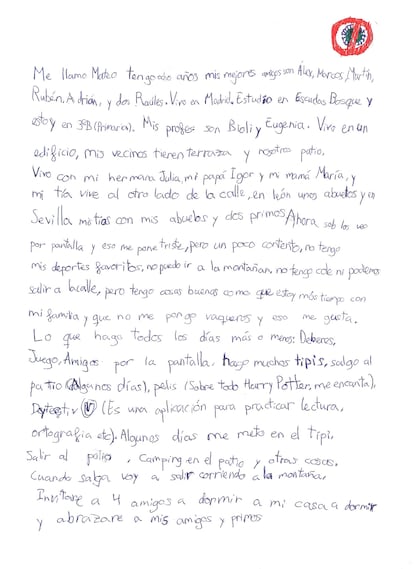 Me llamo Mateo tengo ocho años mis mejores amigos son Álex, Marcos, Martín,
Rubén, Adrián, y dos Raúles. Vivo en Madrid. Estudio en Escuelas Bosque y
estoy en 3ºB (Primaria). Mis profes son Bioli y Eugenia. Vivo en un
edificio, mis vecinos tienen terraza y nosotros patio.
Vivo con mi hermana Julia, mi papá Igor y mi mamá María, y
mi tía vive al otro lado de la calle, en león unos abuelos y en
Sevilla mis tías con mis abuelos y dos primos Ahora solo los veo
por pantalla y eso me pone triste, pero un poco contento, no tengo
mis deportes favoritos, no puedo ir a la montañan. no tengo cole ni podemos
salir a la calle, pero tengo cosas buenas como que estoy más tiempo con
mi familia y que no me pongo vaqueros y eso me gusta.
Lo que hago todos los días más o menos: Deberes,
Juego, Amigos por la pantalla, hago muchos tipis, salgo al
patio (Algunos días), pelis (Sobre todo Harry Potter, me encanta),
(Es una aplicación para practicar lectura,
ortografía etc). Algunos días me meto en el tipi.
Salir al patio, Camping en el patio y otras cosas.
Cuando salga voy a salir corriendo a la montaña,
Invitare a 4 amigos a dormir a mi casa a dormir
y abrazare a mis amigos y primos